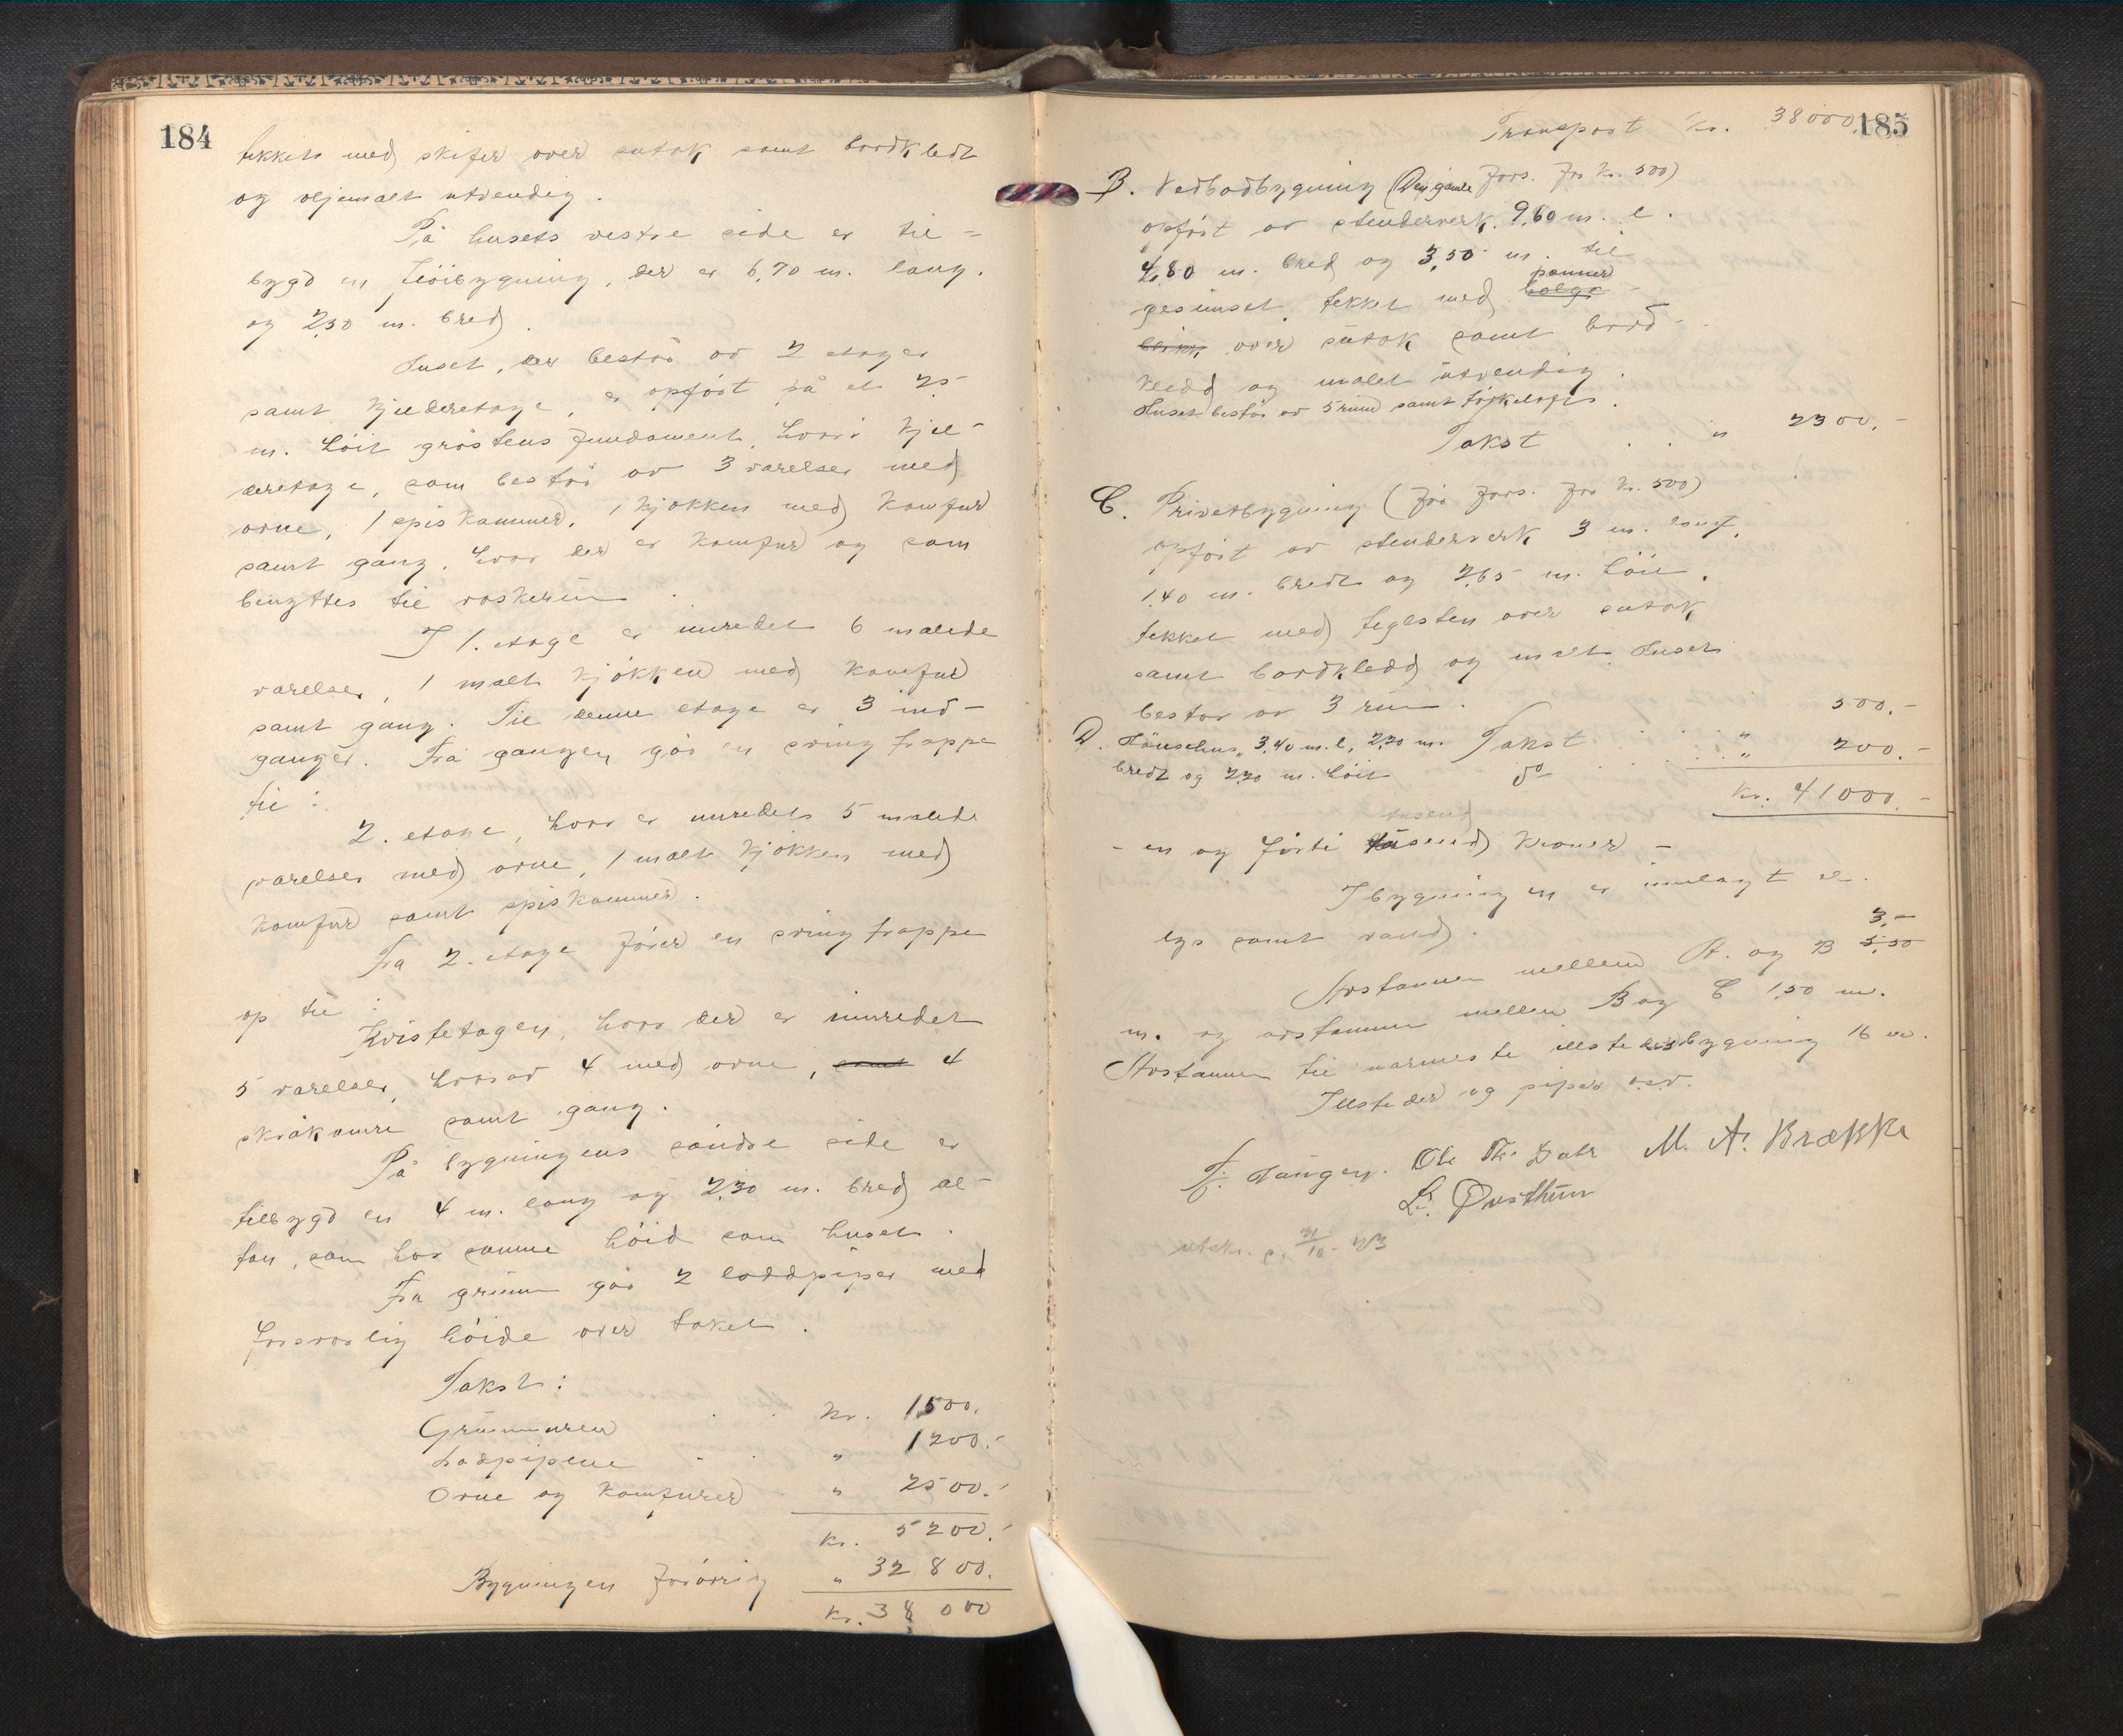 184
tekket med skifer over sutak samt bordkledt
og oljemalt utvendig.
På husets vestre side er til-
bygd en tiöibygning, der er 6,70 m. lang.
og 2,50 m. bred.
Huset, der består av 2 etager
samt kjelderetage, er opført på et 2,5
m. höit gråstens fundament, hvori kjel-
deretage, som består av 3 værelser med
ovne, 1 spiskammer, 1 kjøkken med komfur
samt gang, hvor der er komfur og som
benyttes til vaskerum.
I 1. etage er innredet 6 malede
værelser, 1 malt kjøkken med komfur
samt gang. Til denne etage er 3 ind-
ganger. Fra gangen går en sving trappe
til:
2. etage, hvor er innredet 5 malede
værelser med ovne, 1 malt kjøkken med
komfur samt spiskammer.
Fra 2. etage fører en sving trappe
op til:
Kvistetagen, hvor der er innredet
5 værelser, hvorav 4 med ovne, samt 4
skråkamre samt gang.
På bygningens söndre side er
tilbygd en 4 m. lang og 2,30 m. bred al-
tan, som har samme höid som huset.
Fra grunn går 2 loddpiper med
forsvarlig höide over taket.
Takst:
Grunnmuren . . Kr. 1500.
Lodpipene - . " 1200.-
Ovne og komfurer " 2500.-
Kr. 5200.-
Bygningen forövrig " 32 800.
Kr. 38 000
185
Transport Kr. 38000.
B. Vedbodbygning (Den gamle fors. for kr. 500)
opfört av stenderverk. 9,60 m. l.
4,80 m. bred og 3,50 m. til
panner
gesimset, tekket med bølge-
blikk over sutak samt bord-
kledd og malet utvendig.
Huset består av 5 rum samt tørkeloft.
Takst . . " 2300.-
C. Privetbygning (för fors. for kr. 500)
opfört av stenderverk 3 m. langt,
1,40 m. bredt og 2,65 m. höit.
tekket med teglsten over sutak
samt bordkledd og malt. Huset
består av 3 rum.
500.-
D. Hönsehus, 3,40 m. l, 2,20 m. Takst . . . "
bredt og 2,20 m. höit do . . . . " 200.-
Kr. 41000.-
tusend
- en og förti tusend kroner -
I bygningen er innlagt el.
lys samt vand.
3,-
Avstannen mellem A. og B 5,50
m. og avstannen mellem B og C 1,50 m.
Avstannen til nærmeste illstedsbygning 16 m.
Illsteder og piper osv.
Ole Th. Dahl M. A. Brække
utskr. s. 31/10-23